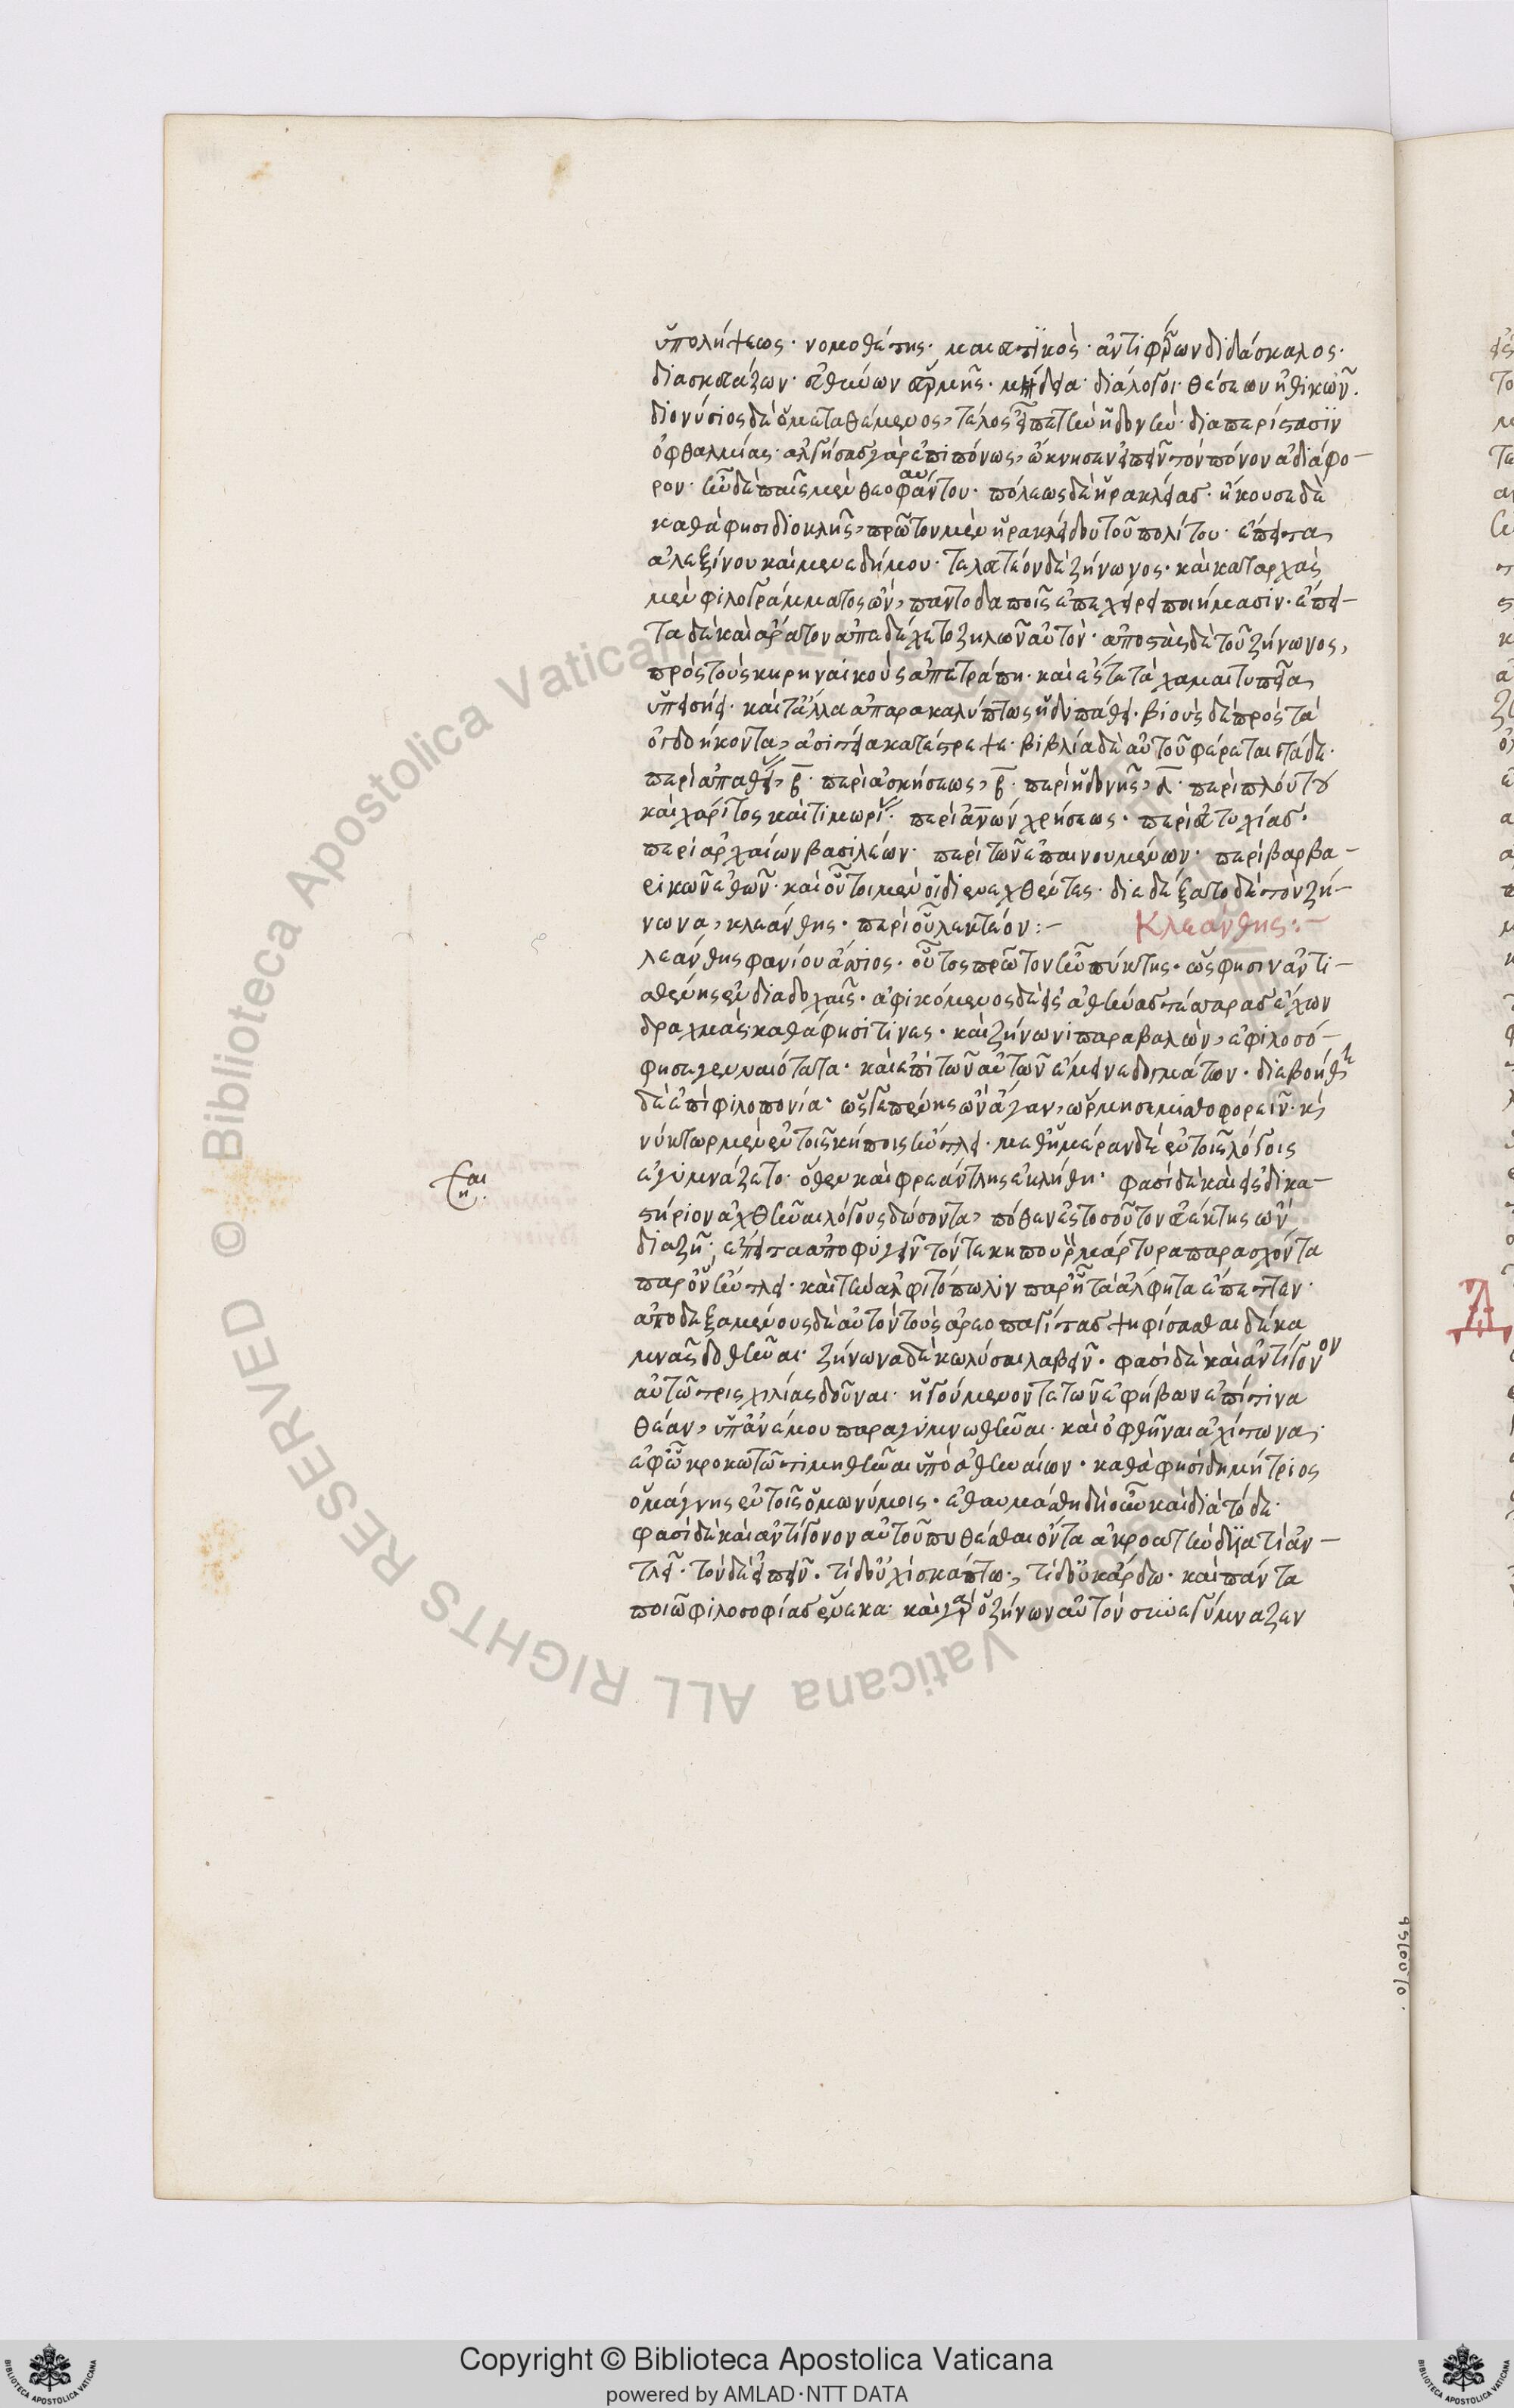 ὑπολήψεως· νομοθέτης· μαιευτικός· ἀντιφέρων διδάσκαλος·
διασκευάζων· εὐθύνων ἑρμῆς· μήδεια· διάλογοι· θέσεων ἠθικῶν.
διονύσιος δὲ ὁ μεταθέμενος, τέλος εἶπε τὴν ἡδονήν· διὰ περίστασιν
ὀφθαλμίας· ἀλγήσας γὰρ ἐπιπόνως, ὤκνησεν εἰπεῖν τὸν πόνον ἀδιάφο-
ρον· ἦν δὲ παῖς μὲν θεοφάντου· πόλεως δὲ ἡρακλείας· ἤκουσε δὲ
καθά φησι διοκλῆς, πρῶτον μὲν ἡρακλείδου τοῦ πολίτου· ἔπειτα
ἀλεξίνου καὶ μενεδήμου· τελευταῖον δὲ ζήνωνος· καὶ καταρχὰς
μὲν φιλογράμματος ὢν, παντοδαποῖς ἐπεχείρει ποιήμασιν· ἔπει-
τα δὲ καὶ ἄρατον ἀπεδέχετο ζηλῶν αὐτόν· ἀποστὰς δὲ τοῦ ζήνωνος,
πρὸς τοὺς κυρηναϊκοὺς ἀπετράπη· καὶ ἔς τε τὰ χαμαιτυπεῖα
εἰσῄει· καὶ τἄλλα ἀπαρακαλύπτως ἡδυπάθει· βιοὺς δὲ πρὸς τὰ
ὀγδοήκοντα, ἀσιτείᾳ κατέστρεψε· βιβλία δὲ αὐτοῦ φέρεται τάδε·
περὶ ἀπαθείας, β· περὶ ἀσκήσεως, β· περὶ ἡδονῆς, δ· περὶ πλούτου
καὶ χάριτος καὶ τιμωρίας· περὶ ἀνων χρήσεως· περὶ εὐτυχίας·
περὶ ἀρχαίων βασιλέων· περὶ τῶν ἐπαινουμένων· περὶ βαρβα-
ρικῶν ἐθῶν· καὶ οὗτοι μὲν οἱ διενεχθέντες· διεδέξατο δὲ τὸν ζή-
νωνα, κλεάνθης· περὶ οὗ λεκτέον:- Κλεάνθης:-
λεάνθης φανίου ἄσσιος· οὗτος πρῶτον ἦν πύκτης· ὥς φησιν ἀντι-
σθένης ἐν διαδοχαῖς· ἀφικόμενος δὲ εἰς ἀθήνας τέσσαρας ἔχων
δραχμὰς καθά φησί τινες· καὶ ζήνωνι παραβαλὼν, ἐφιλοσό-
φησε γενναιότατα· καὶ ἐπὶ τῶν αὐτῶν ἔμεινε δογμάτων· διεβοήθη
δὲ ἐπὶ φιλοπονίᾳ· ὥς γε πένης ὢν ἄγαν, ὥρμησε μισθοφορεῖν· καὶ
νύκτωρ μὲν ἐν τοῖς κήποις ἤντλει· μεθἡμέραν δὲ ἐν τοῖς λόγοις
ἐγυμνάζετο· ὅθεν καὶ φρεάντλης ἐκλήθη· φασὶ δὲ καὶ εἰς δικα-
στήριον ἀχθῆναι λόγους δώσοντα, πόθεν ἐς τοσοῦτον εὐέκτης ὢν
διαζῇ· ἔπειτα ἀποφύγειν τόν τε κηπουρὸν μάρτυρα παρασχόντα
παρὃν ἤντλει· καὶ τὴν ἀλφιτόπωλιν παρᾗ τὰ ἄλφιτα ἔπεττεν·
ἀποδεξαμένους δὲ αὐτὸν τοὺς ἀρεοπαγίτας ψηφίσασθαι δέκα
μνᾶς δοθῆναι· ζήνωνα δὲ κωλῦσαι λαβεῖν· φασὶ δὲ καὶ ἀντίγονον
αὐτῷ τρισχιλίας δοῦναι· ἡγούμενόν τε τῶν ἐφήβων ἐπί τινα
θέαν, ὑπἀνέμου παραγυμνωθῆναι· καὶ ὀφθῆναι ἀχίτωνα·
ἐφᾧ κροκωτῷ τιμηθῆναι ὑπὸ ἀθηναίων· καθά φησι δημήτριος
ὁ μάγνης ἐν τοῖς ὁμωνύμοις· ἐθαυμάσθη δὴ οὖν καὶ διὰ τόδε·
φασὶ δὲ καὶ ἀντίγονον αὐτοῦ πυθέσθαι ὄντα ἀκροατὴν διατί ἀν-
τλεῖ· τὸν δὲ εἰπεῖν· τί δοὐχὶ σκάπτω, τί δοὐκ ἄρδω· καὶ πάντα
ποιῶ φιλοσοφίας ἕνεκα· καὶ γὰρ ὁ ζήνων αὐτὸν συνεγύμναζεν